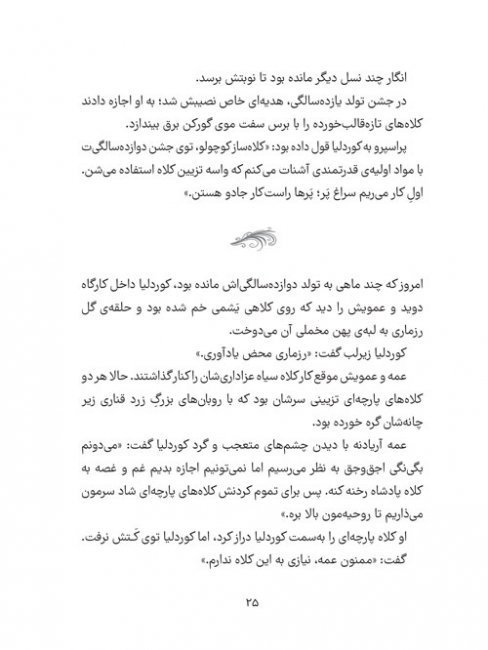 انگار چند نسل دیگر مانده بود تا نوبتش برسد.
در جشن تولد یازده‌سالگی، هدیه‌ای خاص نصیبش شد؛ به او اجازه دادند
کلاه‌های تازه‌قالب‌خورده را با برس سفت موی گورکن برق بیندازد.
پراسپرو به کوردلیا قول داده بود: «کلاه‌ساز کوچولو، توی جشن دوازده‌سالگی‌ت
با مواد اولیه‌ی قدرتمندی آشنات می‌کنم که واسه تزیین کلاه استفاده می‌شن.
اولِ کار می‌ریم سراغ پَر؛ پَرها راست‌کار جادو هستن.»
امروز که چند ماهی به تولد دوازده‌سالگی‌اش مانده بود، کوردلیا داخل کارگاه
دوید و عمویش را دید که روی کلاهی یَشمی خم شده بود و حلقه‌ی گل
رزماری به لبه‌ی پهن مخملی آن می‌دوخت.
کوردلیا زیرلب گفت: «رزماری محض یادآوری.»
عمه و عمویش موقع کار کلاه سیاه عزاداری‌شان را کنار گذاشتند. حالا هر دو
کلاه‌های پارچه‌ای تزیینی سرشان بود که با روبان‌های بزرگِ زرد قناری زیر
چانه‌شان گره خورده بود.
عمه آریادنه با دیدن چشم‌های متعجب و گرد کوردلیا گفت: «می‌دونم
بگی‌نگی اجق‌وجق به نظر می‌رسیم اما نمی‌تونیم اجازه بدیم غم و غصه به
کلاه پادشاه رخنه کنه. پس برای تموم کردنش کلاه‌های پارچه‌ای شاد سرمون
می‌ذاریم تا روحیه‌مون بالا بره.»
او کلاه پارچه‌ای را به‌سمت کوردلیا دراز کرد، اما کوردلیا توی کَتش نرفت.
گفت: «ممنون عمه، نیازی به این کلاه ندارم.»
۲۵